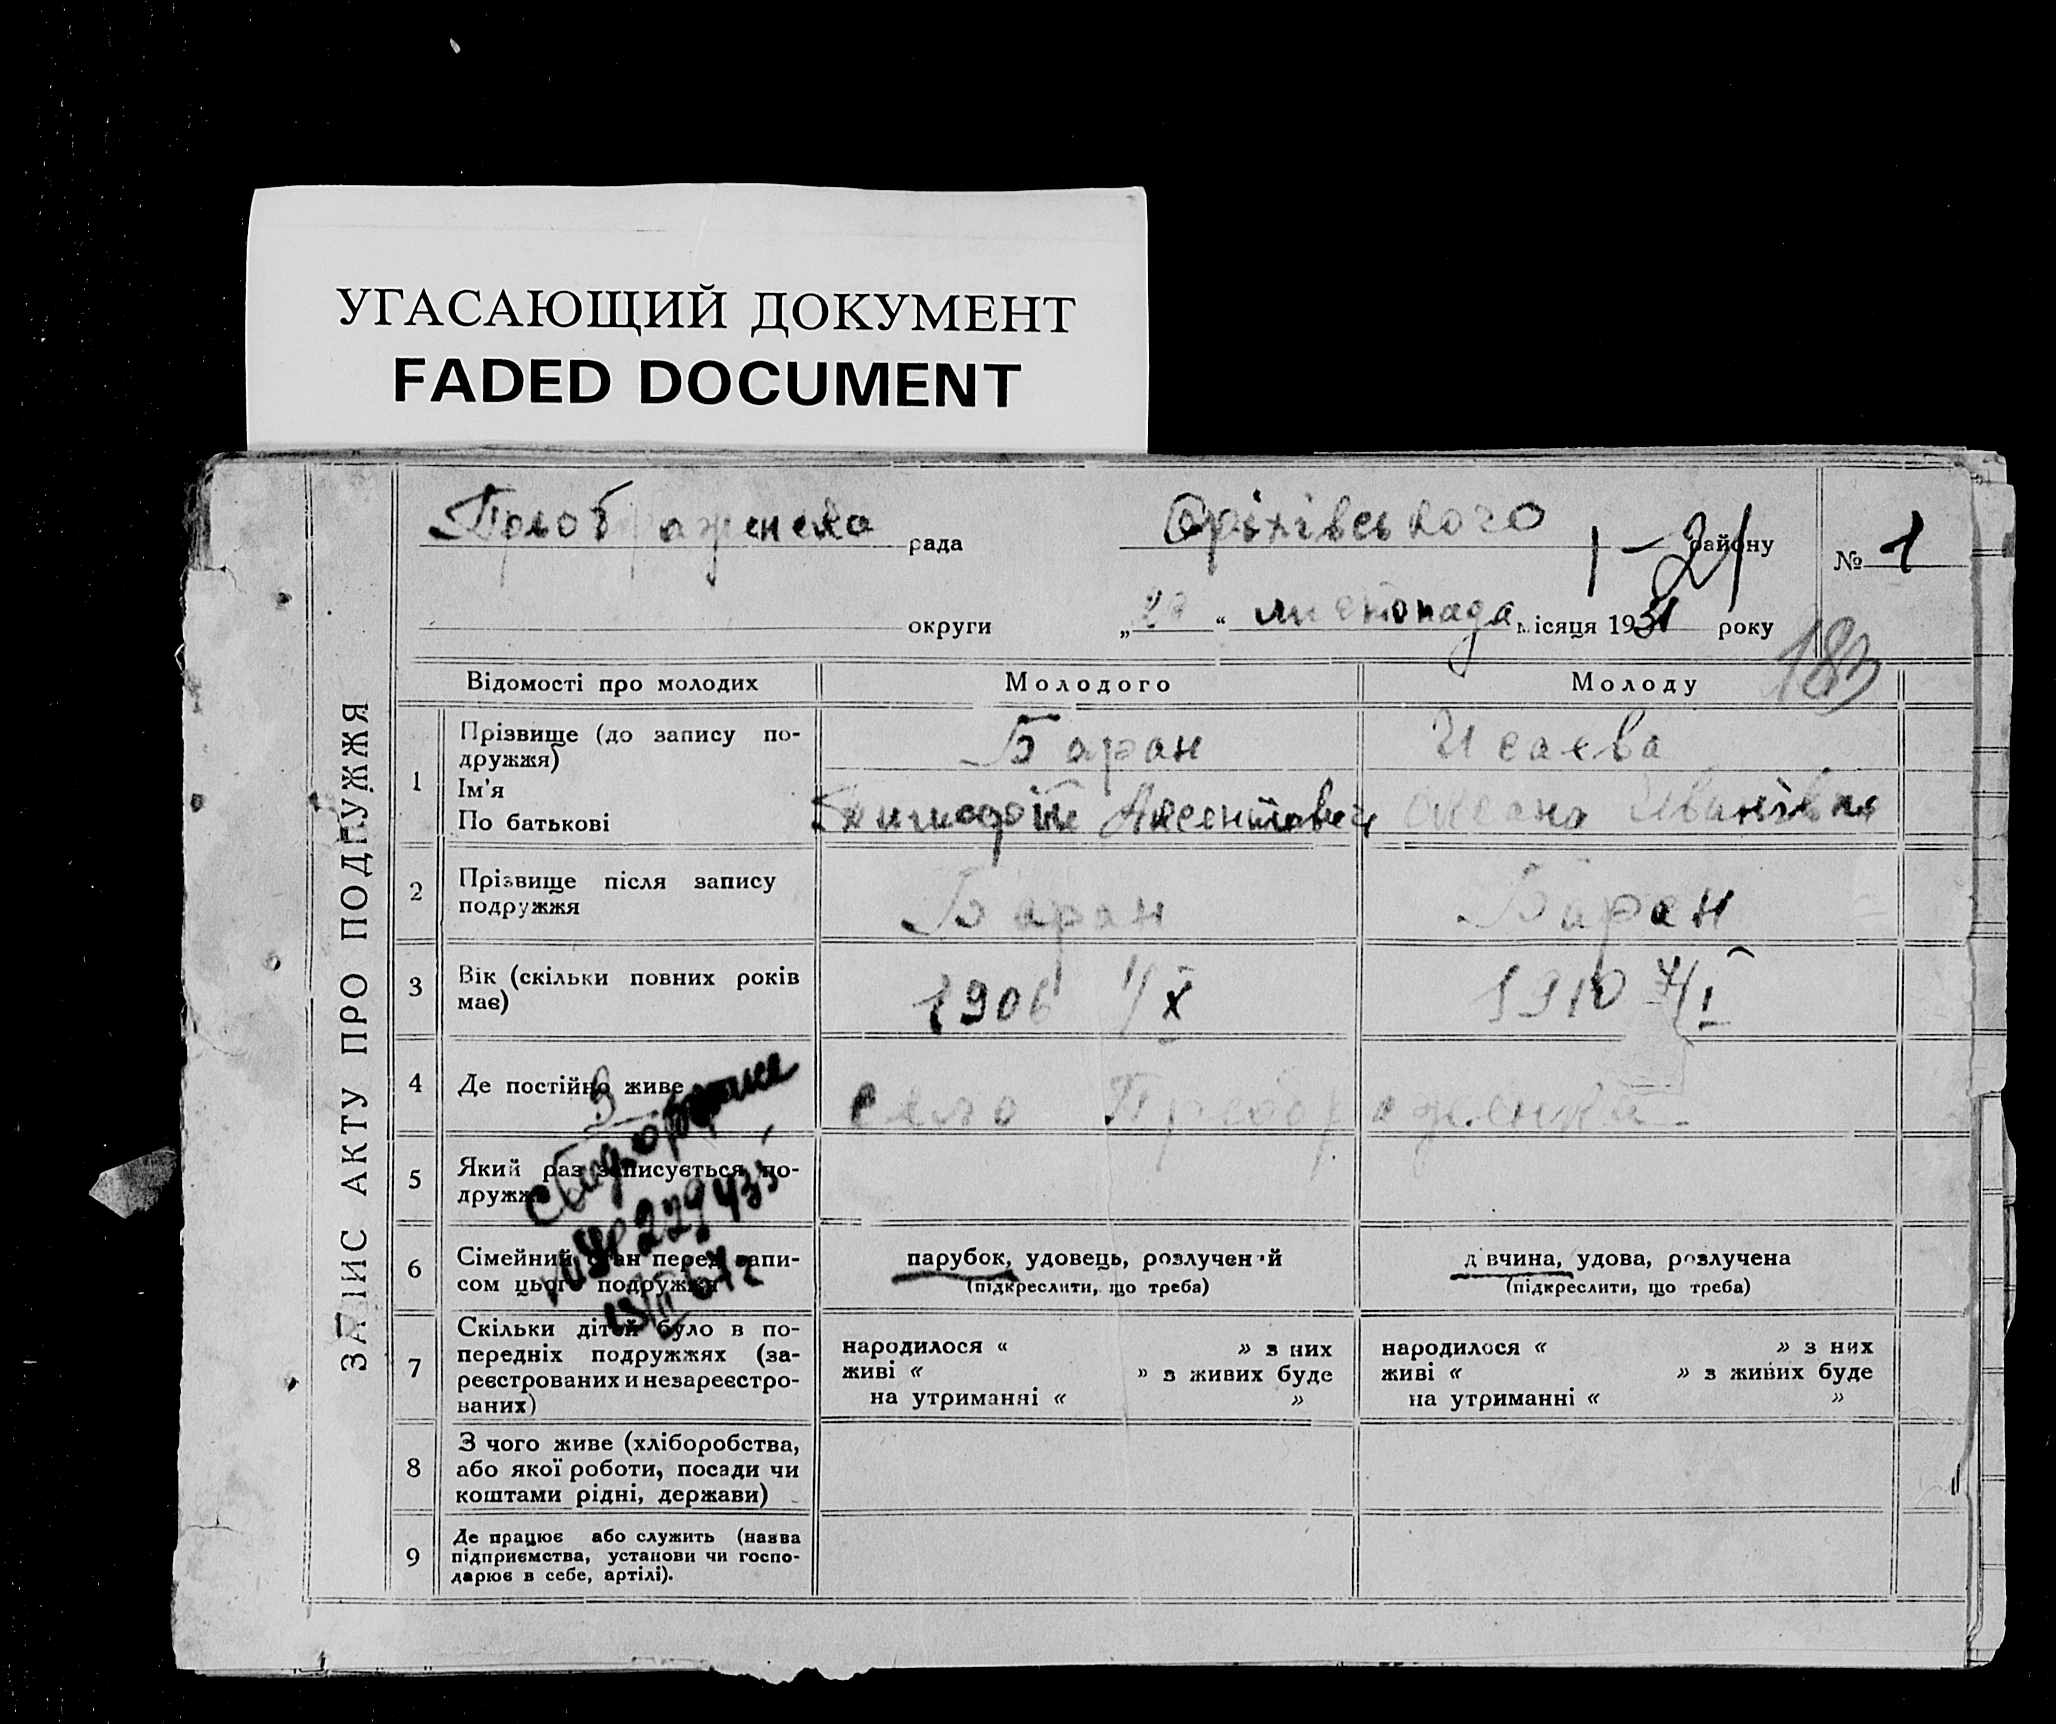 УГАСАЮЩИЙ ДОКУМЕНТ
FADED DOCUMENT
ЗАПИС АКТУ ПРО ПОДРУЖЖЯ
рада
Оріхівського
району
№ 1
1-21
округи
„ “ листопада місяця 1931 року
183
Відомості про молодих
Молодого
Молоду
1
Прізвище (до запису по-
дружжя)
Ім'я
По батькові
Баран
Исаєва
Оксана Іванівна
2
Прізвище після запису
подружжя
Баран
Баран
3
Вік (скільки повних років
має)
1906 1/X
1910 /I
4
Де постійно живе
село Преображенка
5
Який раз записується по-
дружжя
6
Сімейний стан перед запи-
сом цього подружжя
парубок, удовець, розлучений
(підкреслити, що треба)
дівчина, удова, розлучена
(підкреслити, що треба)
7
Скільки дітей було в по-
передніх подружжях (за-
реєстрованих и незареєстро-
ваних)
народилося « » з них
живі « » з живих буде
на утриманні « »
народилося « » з них
живі « » з живих буде
на утриманні « »
8
З чого живе (хліборобства,
або якої роботи, посади чи
коштами рідні, держави)
9
Де працює або служить (назва
підприємства, установи чи госпо-
дарює в себе, артілі).